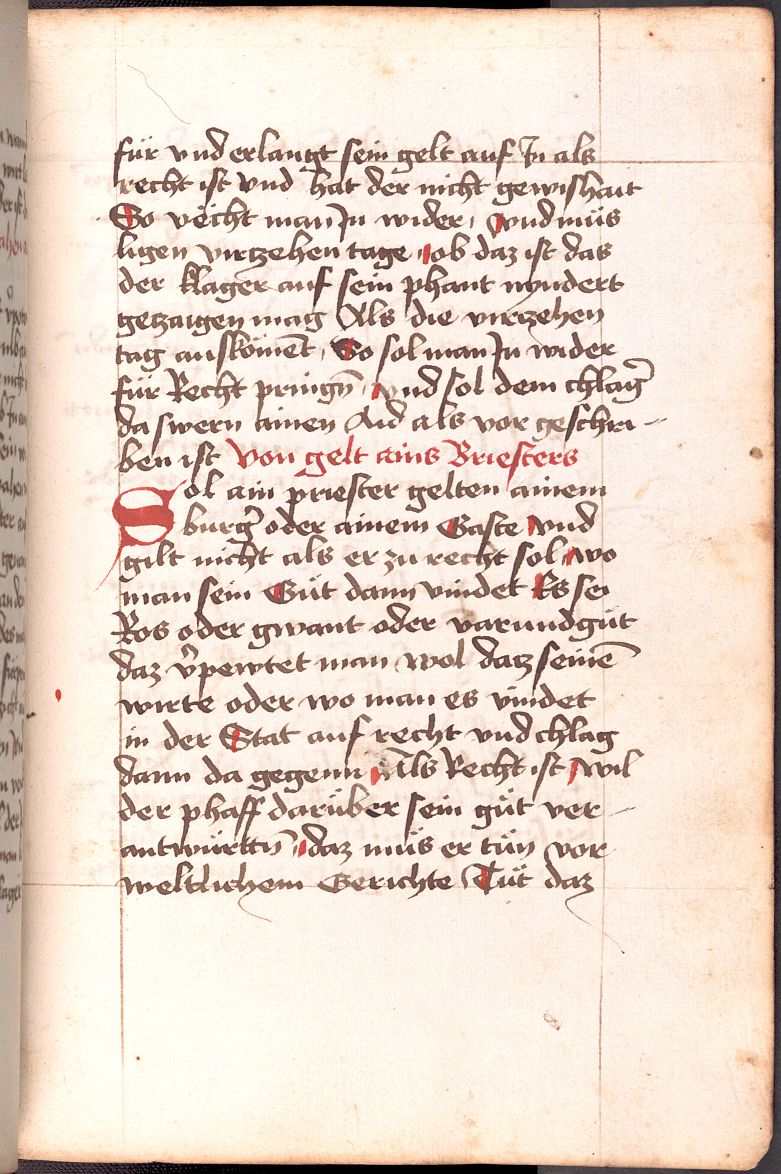 für vnd erlangt sein gelt auf In als
recht ist vnd hat der nicht gewishait
So vecht man In wider, vnd müs
ligen virczehen tage, ob daz ist das
der klager auf sein phant nyndert
geczaigen mag Als die virczehen
tag auskömēt, So sol man In wider
für Recht pringn̄, vnd sol dem chlag̃
da swern ainen Aid als vor geschri-
ben ist Von gelt ains Briesters
Sol ain priester gelten ainem
burg̃ oder ainem Gaste vnd
gilt nicht als er zu recht sol, wo
man sein Güt dann vindet Es sei
Ros oder gwant oder varundgüt
daz v̄pewtet man wol datz seinē
wirte oder wo man es vindet
in der Stat auf recht vnd chlag
dann da gegenn, Als Recht ist, wil
der phaff darüber sein güt ver-
antwürttn̄, daz müs er tün vor
weltlichem Gerichte Tüt daz